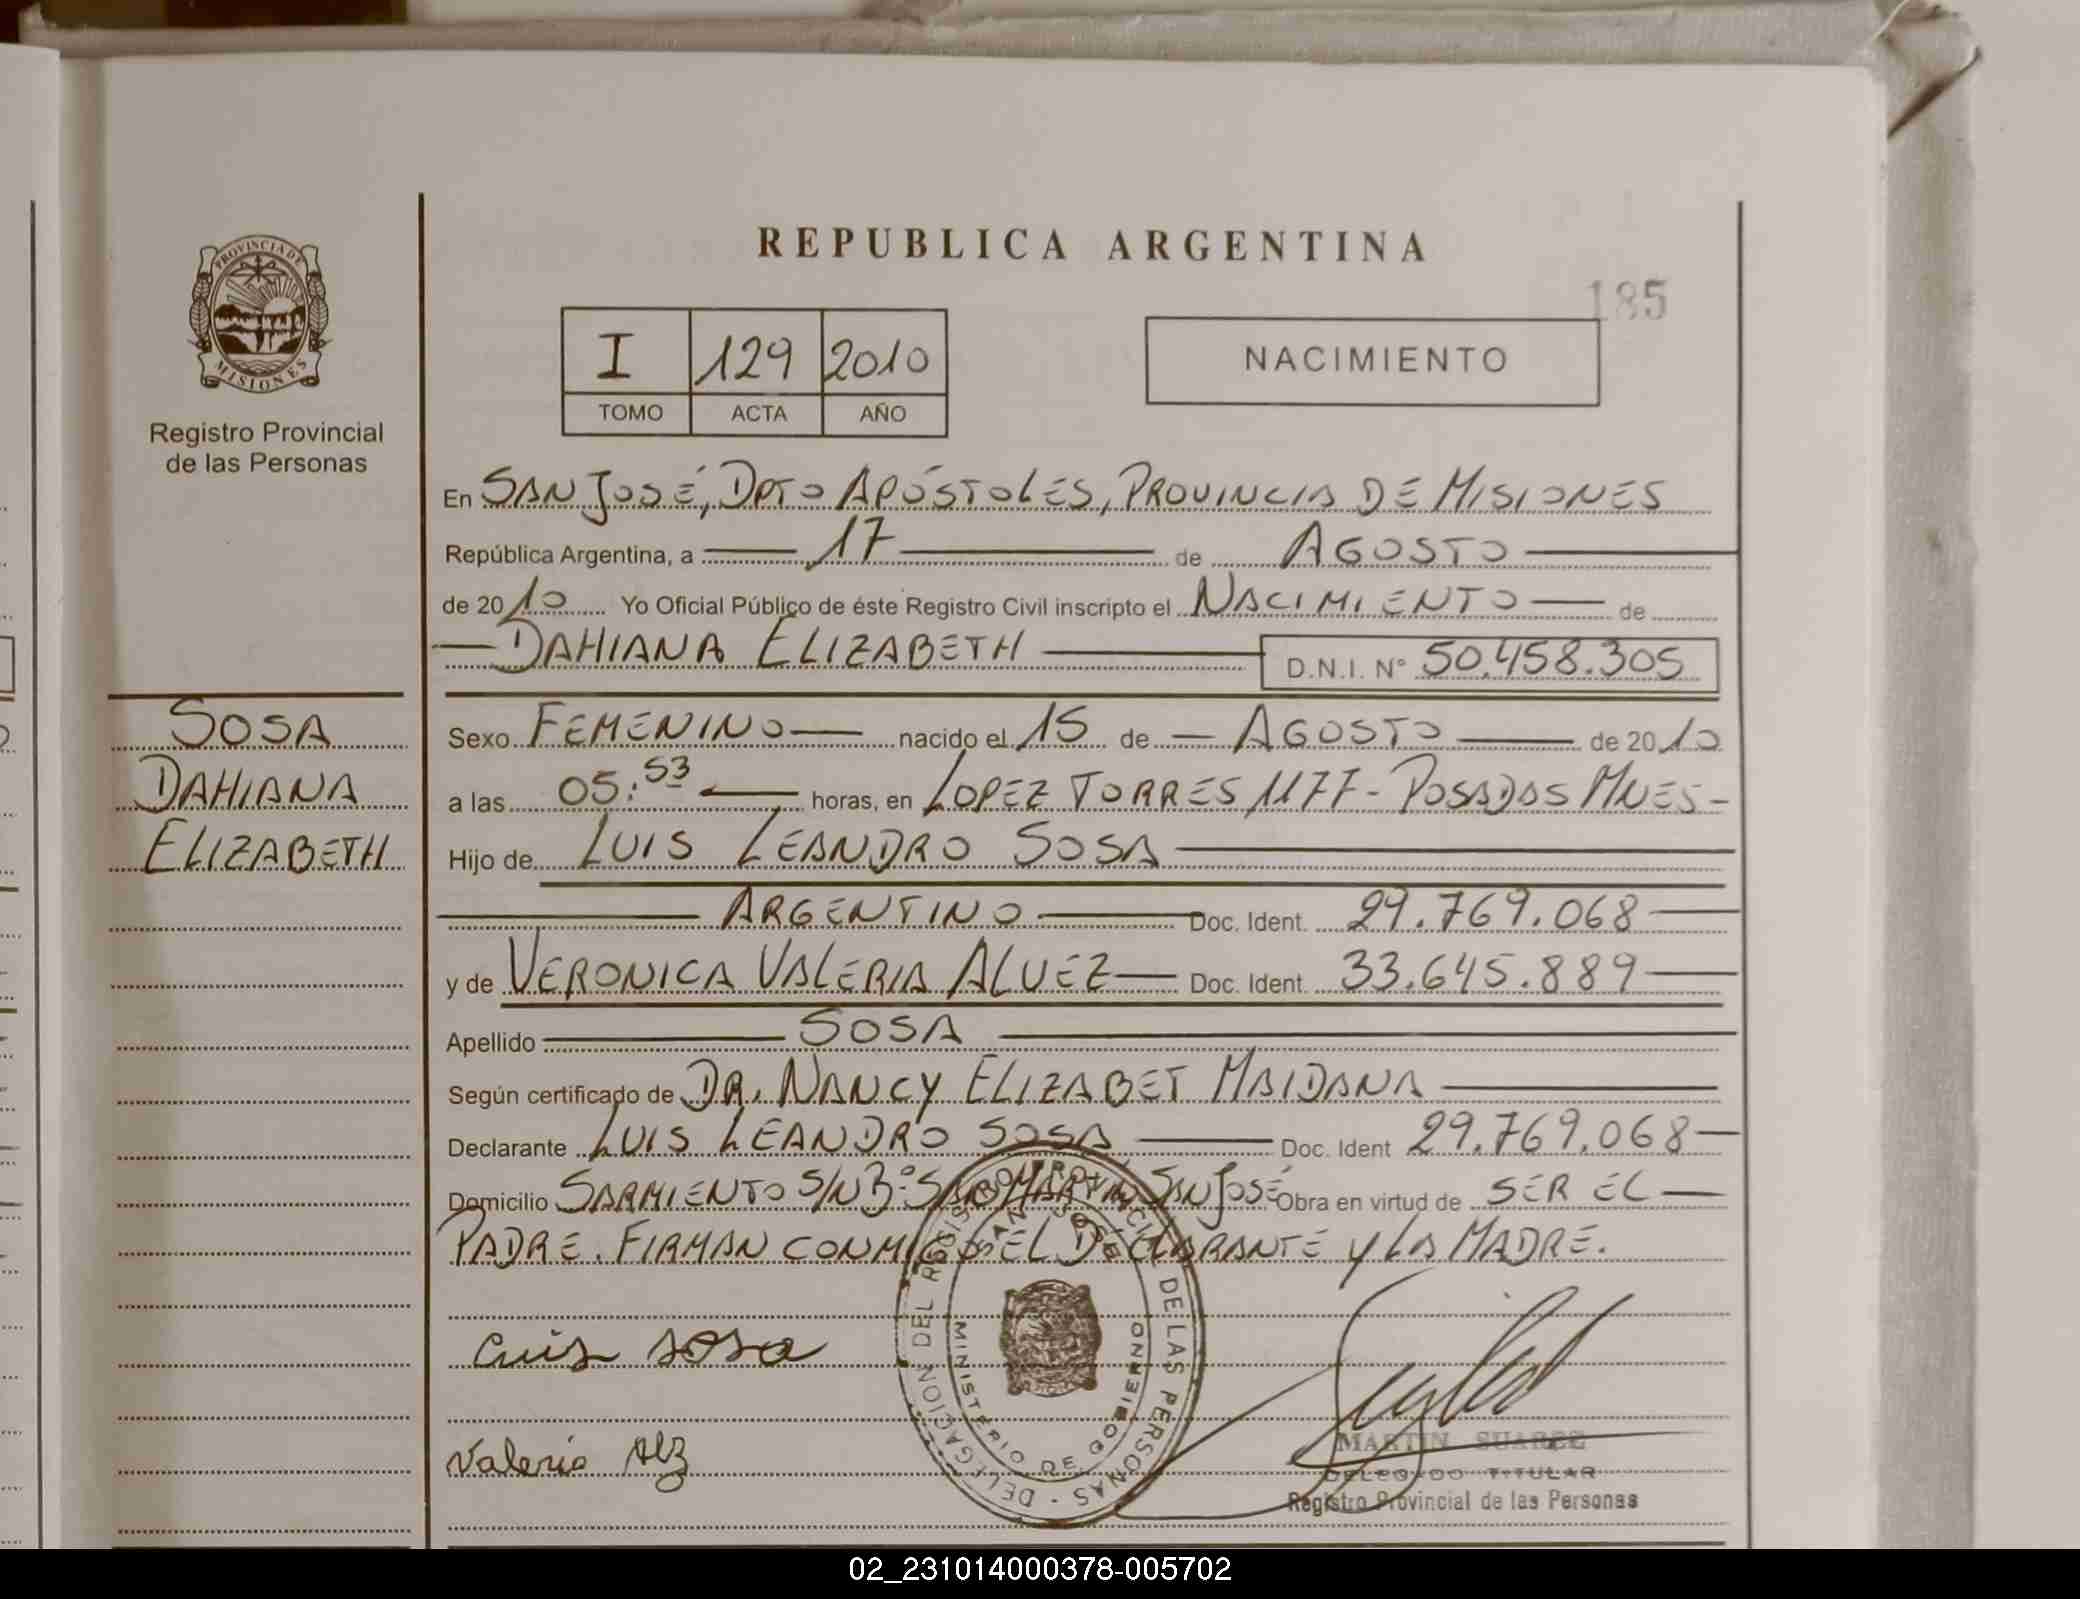 PROVINCIA DE
MISIONES
Registro Provincial
de las Personas
SOSA
DAHIANA
ELIZABETH
REPUBLICA ARGENTINA
185
I 129 2010
TOMO ACTA AÑO
NACIMIENTO
En SAN JOSÉ, DPTO APÓSTOLES, PROVINCIA DE MISIONES
República Argentina, a 17 de AGOSTO
de 2010 Yo Oficial Público de éste Registro Civil inscripto el NACIMIENTO de
DAHIANA ELIZABETH D.N.I. N° 50.458.305
Sexo FEMENINO nacido el 15 de AGOSTO de 2010
a las 05:53 horas, en LOPEZ TORRES 1177 - POSADAS MNES-
Hijo de LUIS LEANDRO SOSA
ARGENTINO Doc. Ident. 29.769.068
y de VERONICA VALERIA ALVEZ Doc. Ident. 33.645.889
Apellido SOSA
Según certificado de DR. NANCY ELIZABET MAIDANA
Declarante LUIS LEANDRO SOSA Doc. Ident 29.769.068
Domicilio SARMIENTO S/N B° SAN MARTIN SAN JOSÉ Obra en virtud de SER EL
PADRE. FIRMAN CONMIGO EL DECLARANTE Y LA MADRE.
Luis Sosa
Valeria Alz
DELEGACION DEL REGISTRO PROVINCIAL DE LAS PERSONAS -
SAN JOSE
MINISTERIO DE GOBIERNO
MARTIN SUAREZ
DELEGADO TITULAR
Registro Provincial de las Personas
02_231014000378-005702